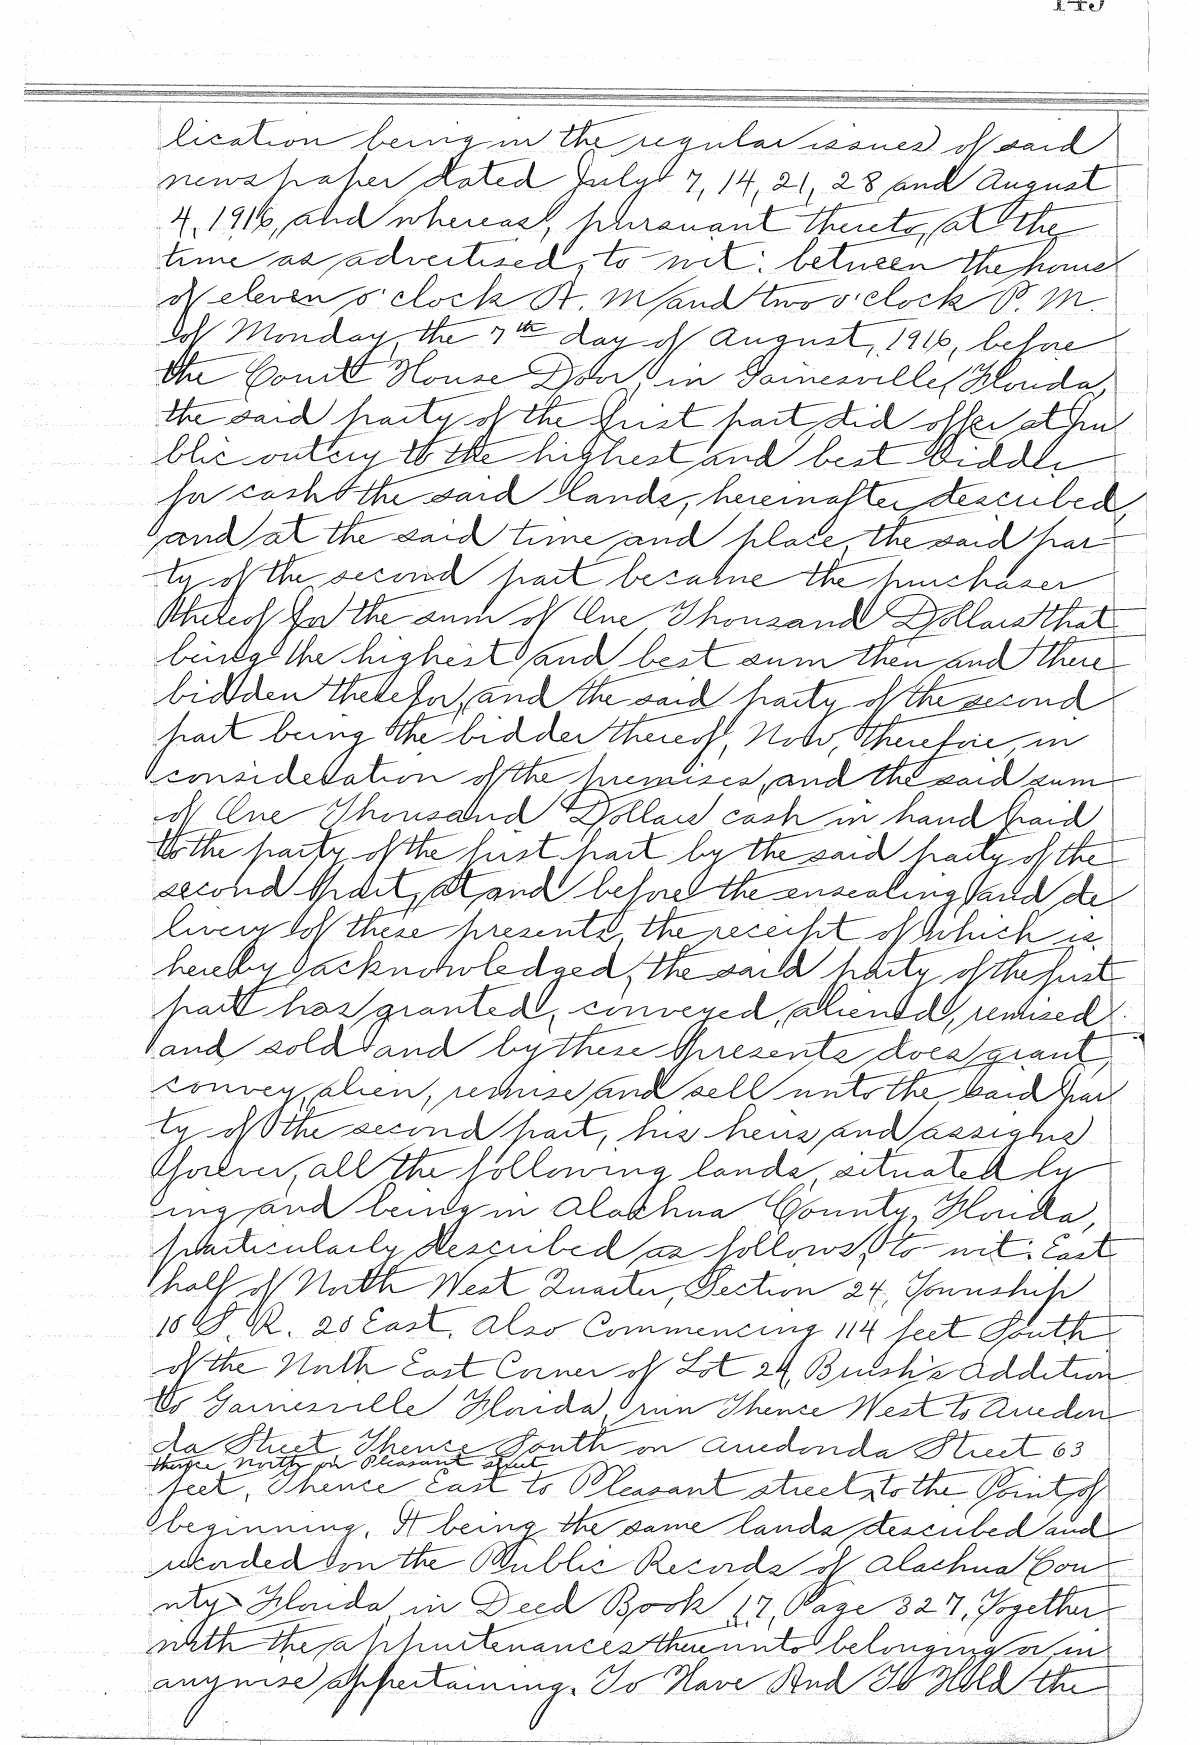 lication being in the regular issues of said
newspaper dated July 7, 14, 21, 28 and August
4, 1916, and whereas, pursuant thereto, at the
time as advertised, to wit: between the hours
of eleven o'clock A. M. and two o'clock P. M.
of Monday, the 7th day of August, 1916, before
the Court House Door, in Gainesville, Florida,
the said party of the first part did offer at pu
blic outcry to the highest and best bidder
for cash the said lands, hereinafter described,
and at the said time and place, the said par-
ty of the second part became the purchaser
thereof for the sum of One Thousand Dollars that
being the highest and best sum then and there
bidden therefor, and the said party of the second
part being the bidder thereof, Now, therefore, in
consideration of the premises, and the said sum
of One Thousand Dollars cash in hand paid
to the party of the first part by the said party of the
second part, at and before the ensealing and de
livery of these presents, the receipt of which is
hereby acknowledged, the said party of the first
part has granted, conveyed, aliened, remised
and sold and by these presents does grant,
convey, alien, remise and sell unto the said par
ty of the second part, his heirs and assigns
forever, all the following lands, situated ly
ing and being in Alachua County, Florida,
particularly described as follows, to-wit: East
half of North West Quarter, Section 24, Township
10 S. R. 20 East. Also Commencing 114 feet South
of the North East Corner of Lot 24, Brush's Addition
to Gainesville Florida, run Thence West to Arredon
da Street, Thence South on Arredonda Street 63
thence North on Pleasant street
feet, Thence East to Pleasant street, to the Point of
beginning. It being the same lands described and
recorded on the Public Records of Alachua Cou
nty Florida in Deed Book 17, Page 327, Together
with the appurtenances thereunto belonging or in
anywise appertaining. To Have And To Hold the